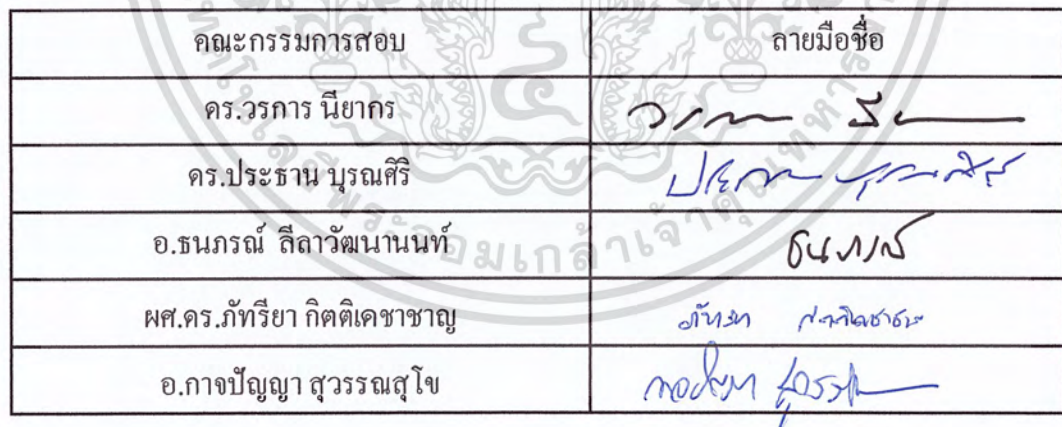 คณะกรรมการสอบ ลายมือชื่อ
ดร.วรการ นียากร
ดร.ประธาน บุรณศิริ
อ.ธนภรณ์ ลีลาวัฒนานนท์ ธนภรณ์
ผศ.ดร.ภัทรียา กิตติเดชาชาญ
อ.กาจปัญญา สุวรรณสุโข
พระจอมเกล้าเจ้าคุณทหาร